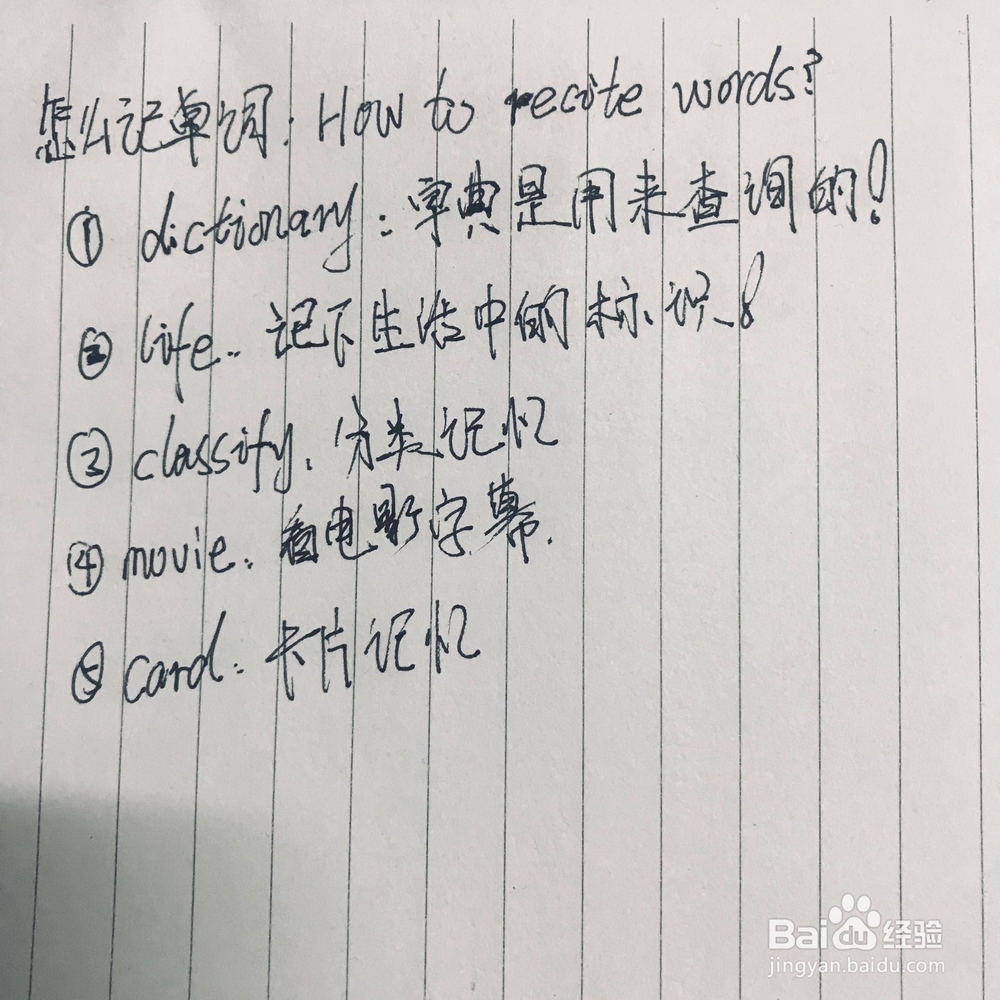 怎么记单词: How to recite words?
① dictionary: 字典是用来查询的!
② life: 记下生活中的标识!
③ classify: 分类记忆
④ movie: 看电影字幕.
⑤ card: 卡片记忆
Baidu经验
jingyan.baidu.com